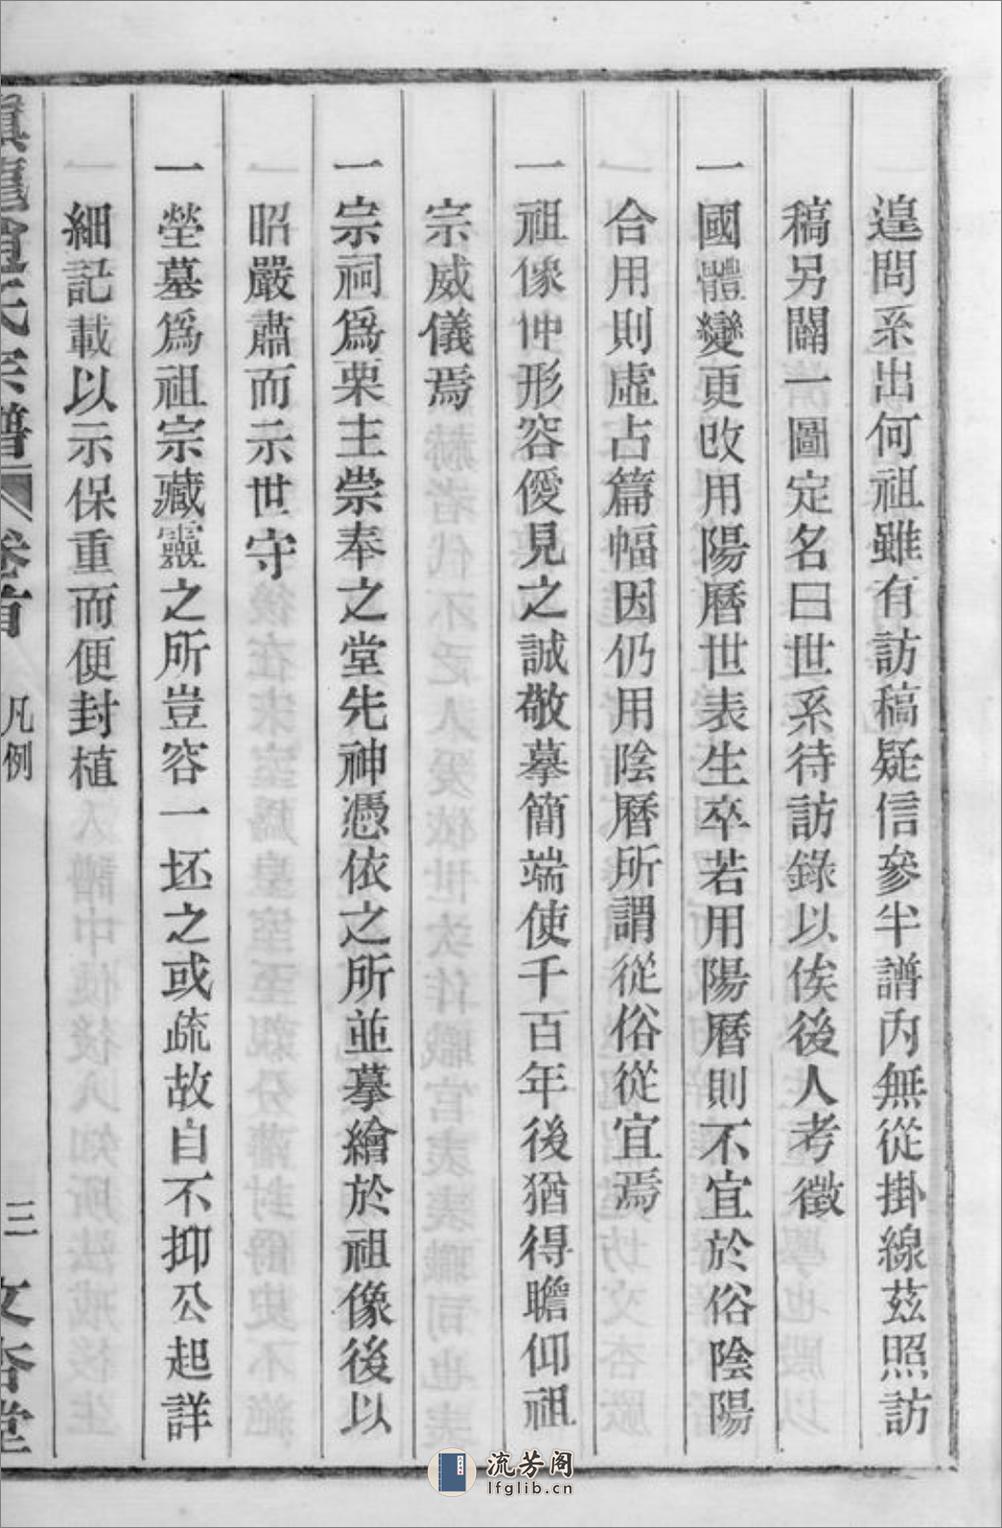 遑問系出何祖雖有訪稿疑信參半譜內無從掛線茲照訪
稿另闢一圖定名曰世系待訪錄以俟後人考徵
一國體變更改用陽曆世表生卒若用陽曆則不宜於俗陰陽
合用則虛占篇幅因仍用陰曆所謂從俗從宜焉
一祖像仲形容僾見之誠敬摹簡端使千百年後猶得瞻仰祖
宗威儀焉
一宗祠爲栗主崇奉之堂先神憑依之所並摹繪於祖像後以
昭嚴肅而示世守
一塋墓爲祖宗藏靈之所豈容一坯之或疏故自不抑公起詳
細記載以示保重而便封植
氏宗譜 卷首 凡例 三 文杏堂
流芳阁
lfglib.cn